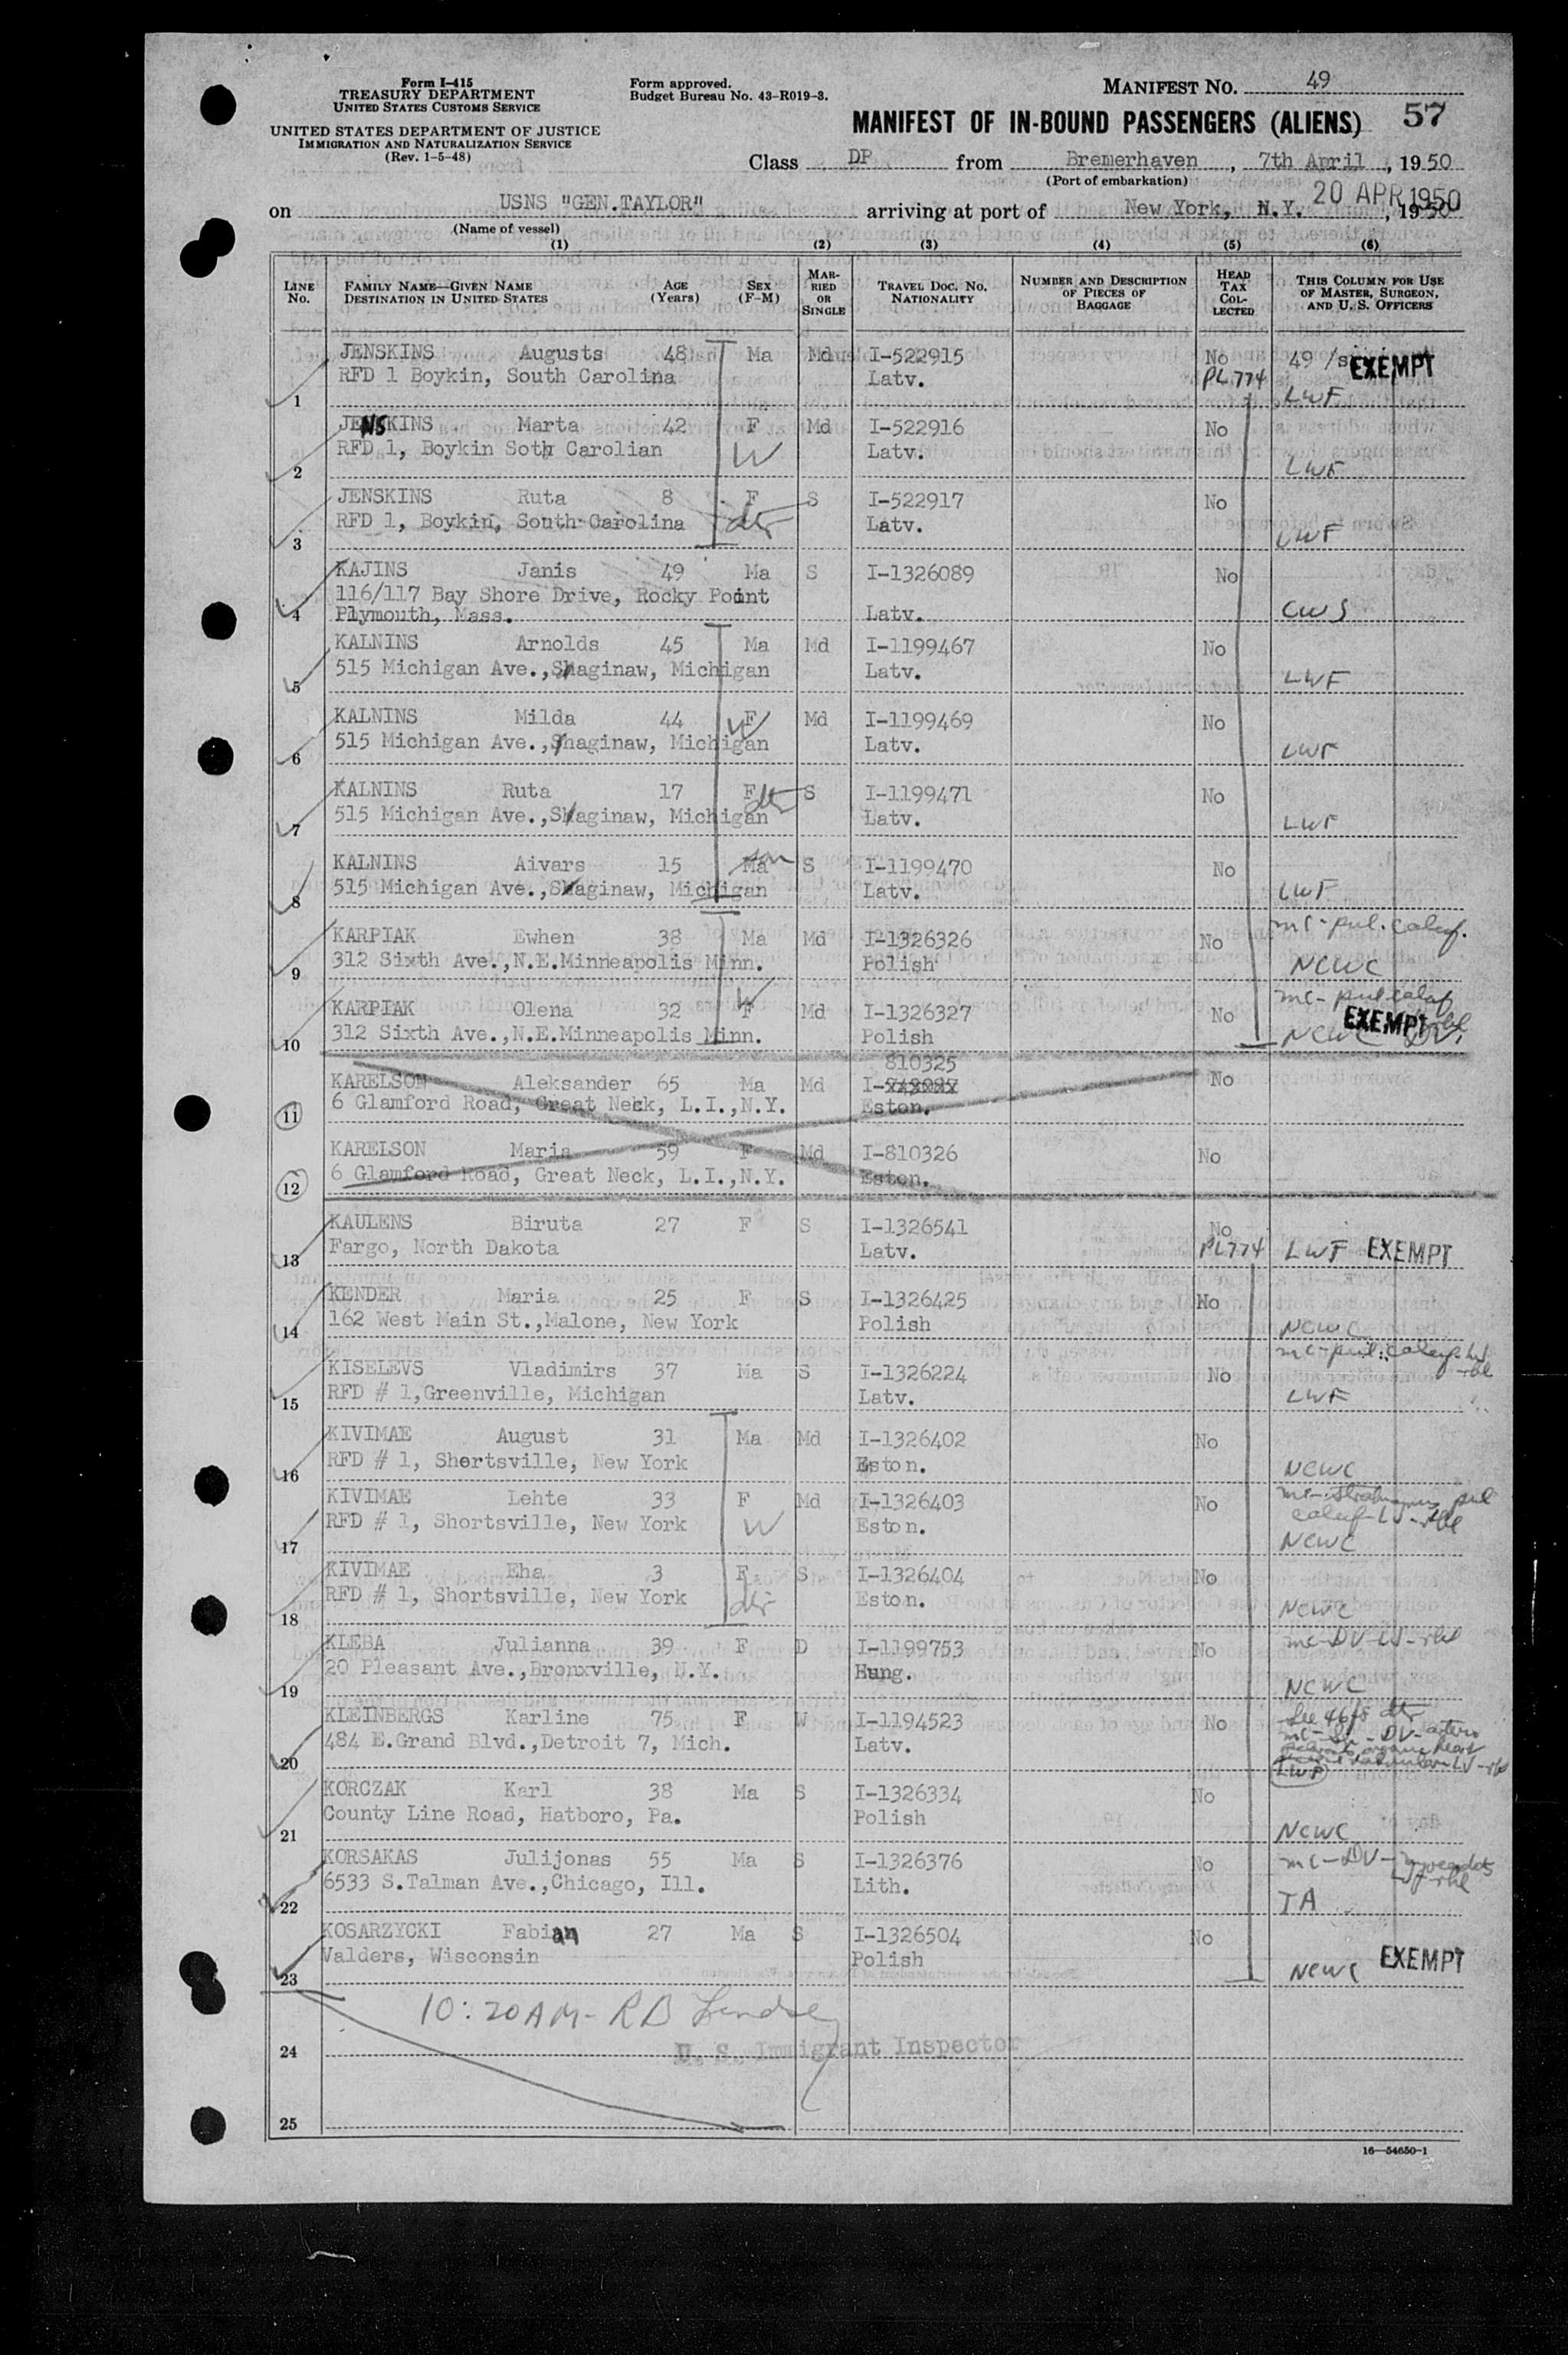 Form I-415
TREASURY DEPARTMENT
UNITED STATES CUSTOMS SERVICE
UNITED STATES DEPARTMENT OF JUSTICE
IMMIGRATION AND NATURALIZATION SERVICE
(Rev. 1-5-48)
Form approved.
Budget Bureau No. 43-R019-3.
MANIFEST NO. 49
MANIFEST OF IN-BOUND PASSENGERS (ALIENS) 57
Class DP from Bremerhaven, 7th April, 1950
(Port of embarkation)
20 APR 1950
on USNS "GEN.TAYLOR" arriving at port of New York, N.Y., 1950
(Name of vessel)
(1) (2) (3) (4) (5) (6)
LINE No. FAMILY NAME—GIVEN NAME DESTINATION IN UNITED STATES AGE (Years) SEX (F-M) MARRIED OR SINGLE TRAVEL DOC. NO. NATIONALITY NUMBER AND DESCRIPTION OF PIECES OF BAGGAGE HEAD TAX COLLECTED THIS COLUMN FOR USE OF MASTER, SURGEON, AND U. S. OFFICERS
JENSKINS Augusts 48 Ma Md I-522915 No 49 EXEMPT
RFD 1 Boykin, South Carolina Latv. PL774
1 LWF
JENSKINS Marta 42 F Md I-522916 No
RFD 1, Boykin Soth Carolian W Latv.
2 LWF
JENSKINS Ruta 8 F S I-522917 No
RFD 1, Boykin, South Carolina dtr Latv.
3 LWF
KAJINS Janis 49 Ma S I-1326089 No
116/117 Bay Shore Drive, Rocky Point
4 Plymouth, Mass. Latv. CWS
KALNINS Arnolds 45 Ma Md I-1199467 No
515 Michigan Ave.,Shaginaw, Michigan Latv.
5 LWF
KALNINS Milda 44 F W Md I-1199469 No
515 Michigan Ave.,Shaginaw, Michigan Latv.
6 LWF
KALNINS Ruta 17 F dtr S I-1199471 No
515 Michigan Ave.,Shaginaw, Michigan Latv.
7 LWF
KALNINS Aivars 15 Ma son S I-1199470 No
515 Michigan Ave.,Shaginaw, Michigan Latv.
8 LWF
KARPIAK Ewhen 38 Ma Md I-1326326 No mc-pul.calcif.
312 Sixth Ave.,N.E.Minneapolis Minn. Polish
9 NCWC
KARPIAK Olena 32 F W Md I-1326327 No mc-pul calcif
312 Sixth Ave.,N.E.Minneapolis Minn. Polish EXEMPT
10 NCWC DV.
810325
KARELSON Aleksander 65 Ma Md I- No
6 Glamford Road, Great Neck, L.I.,N.Y. Eston.
11
KARELSON Maria 59 F Md I-810326 No
6 Glamford Road, Great Neck, L.I.,N.Y. Eston.
12
KAULENS Biruta 27 F S I-1326541 No
Fargo, North Dakota Latv. PL774 LWF EXEMPT
13
KENDER Maria 25 F S I-1326425 No
162 West Main St.,Malone, New York Polish
14 NCWC
KISELEVS Vladimirs 37 Ma S I-1326224 No mc-pul.calcif LJ-rbl
RFD # 1,Greenville, Michigan Latv.
15 LWF
KIVIMAE August 31 Ma Md I-1326402 No
RFD # 1, Shortsville, New York Eston.
16 NCWC
KIVIMAE Lehte 33 F Md I-1326403 No mc- pul
RFD # 1, Shortsville, New York W Eston. calcif-LJ-rbl
17 NCWC
KIVIMAE Eha 3 F S I-1326404 No
RFD # 1, Shortsville, New York dtr Eston.
18 NCWC
KLEBA Julianna 39 F D I-1199753 No mc-DV-LJ-rbl
20 Pleasant Ave.,Bronxville, N.Y. Hung.
19 NCWC
KLEINBERGS Karline 75 F W I-1194523 No See 46/8 dtr
484 E.Grand Blvd.,Detroit 7, Mich. Latv. mc- DV- heart
20 LWF LJ-rbl
KORCZAK Karl 38 Ma S I-1326334 No
County Line Road, Hatboro, Pa. Polish
21 NCWC
KORSAKAS Julijonas 55 Ma S I-1326376 No mc-DV-
6533 S.Talman Ave.,Chicago, Ill. Lith. LJ-rbl
22 TA
KOSARZYCKI Fabian 27 Ma S I-1326504 No
Valders, Wisconsin Polish EXEMPT
23 NCWC
10:20AM- RB Lindsey
24 U. S. Immigrant Inspector
25
16—54650-1